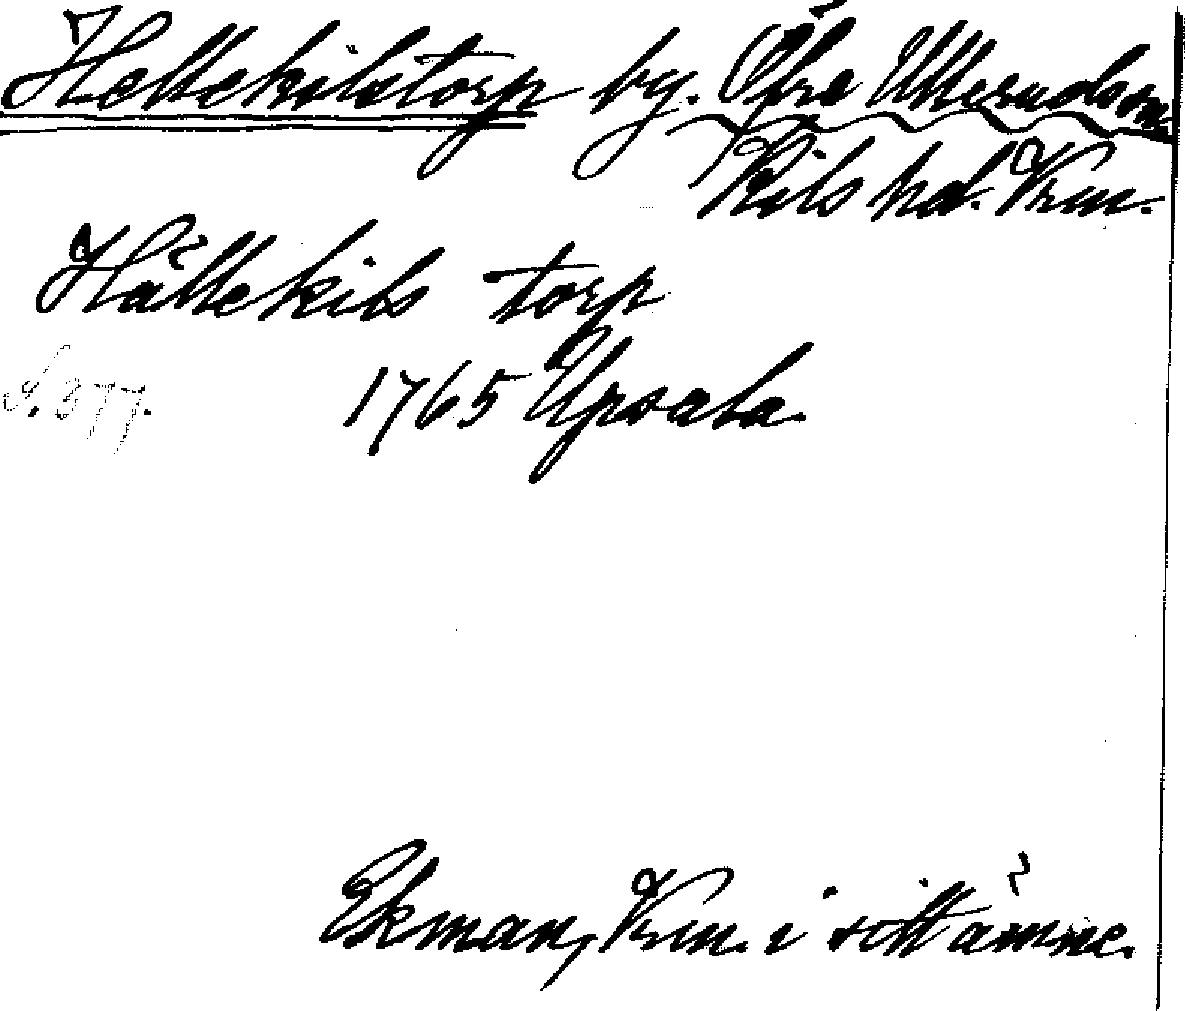 Hellekilstorp by. Öfre Ulleruds sn.
Kils hd. Vrm.
Hällekils torp
S. 377. 1765 Upsala
Ekman, Vrm. i sitt ämne.